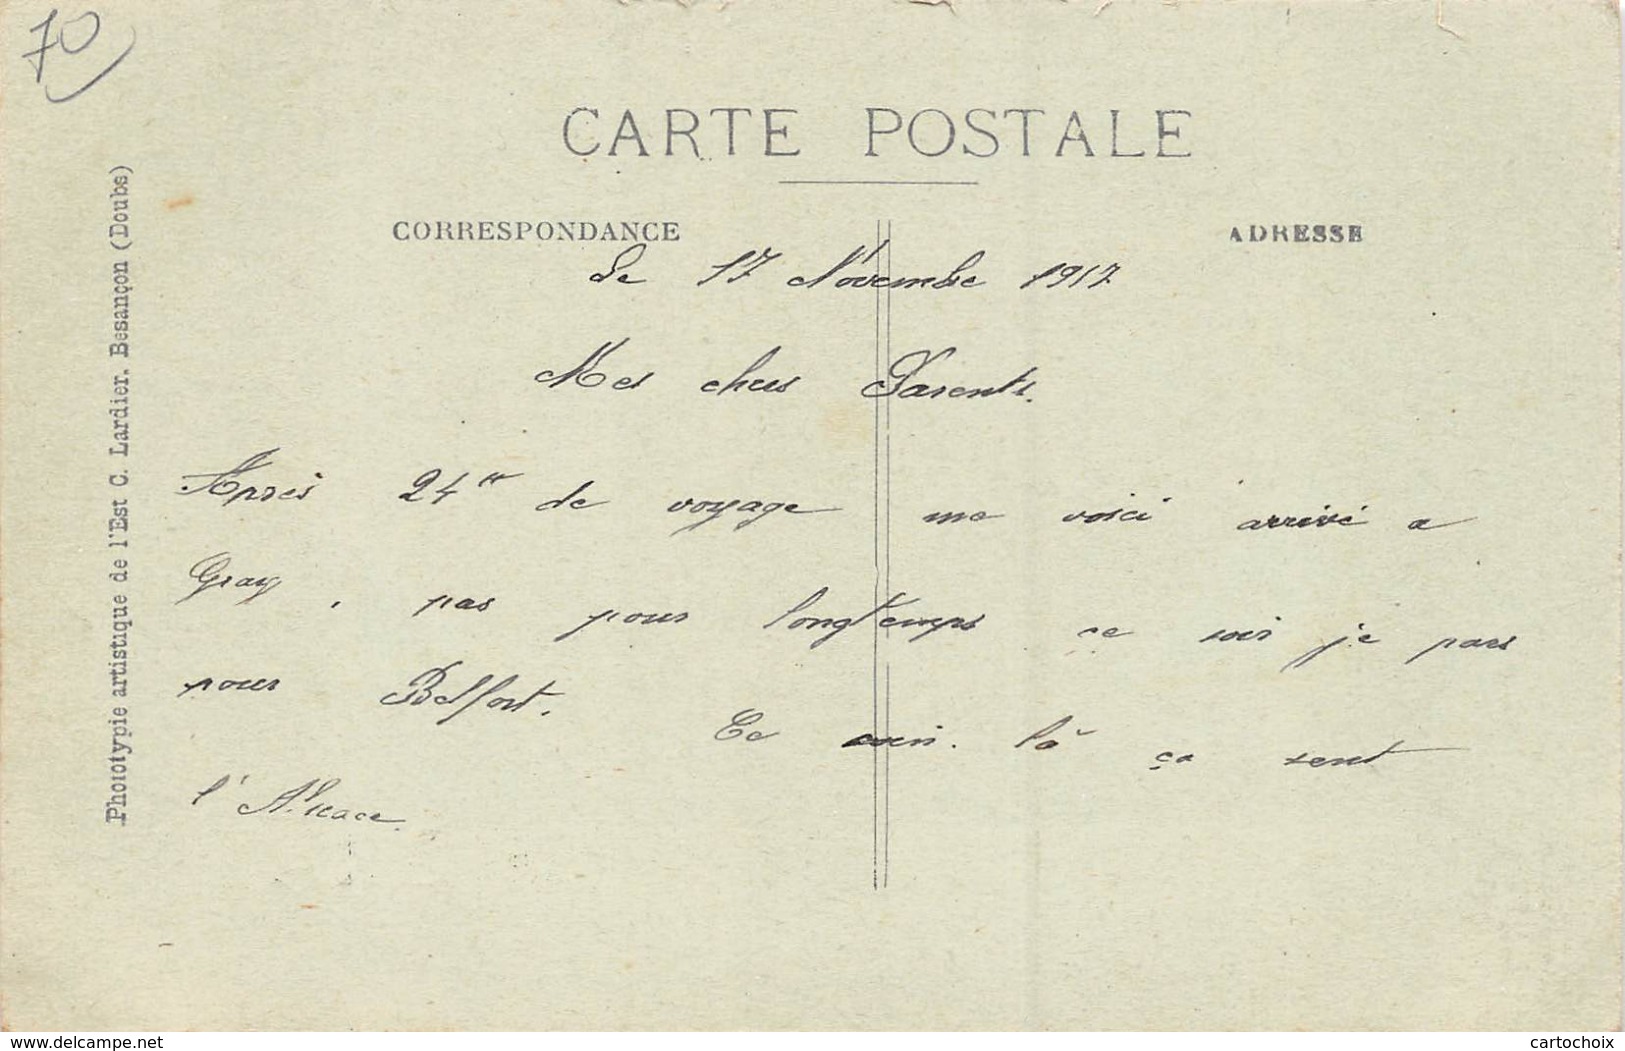 70
CARTE POSTALE
CORRESPONDANCE
ADRESSE
Le 17 Novembre 1917
Mes chers Parents.
Après 24 de voyage me voici arrivé a
Gray, pas pour longtemps ce soir je pars
pour Belfort. là ça sent
l'Alsace.
Phototypie artistique de l'Est C. Lardier. Besançon (Doubs)
www.delcampe.net
cartochoix